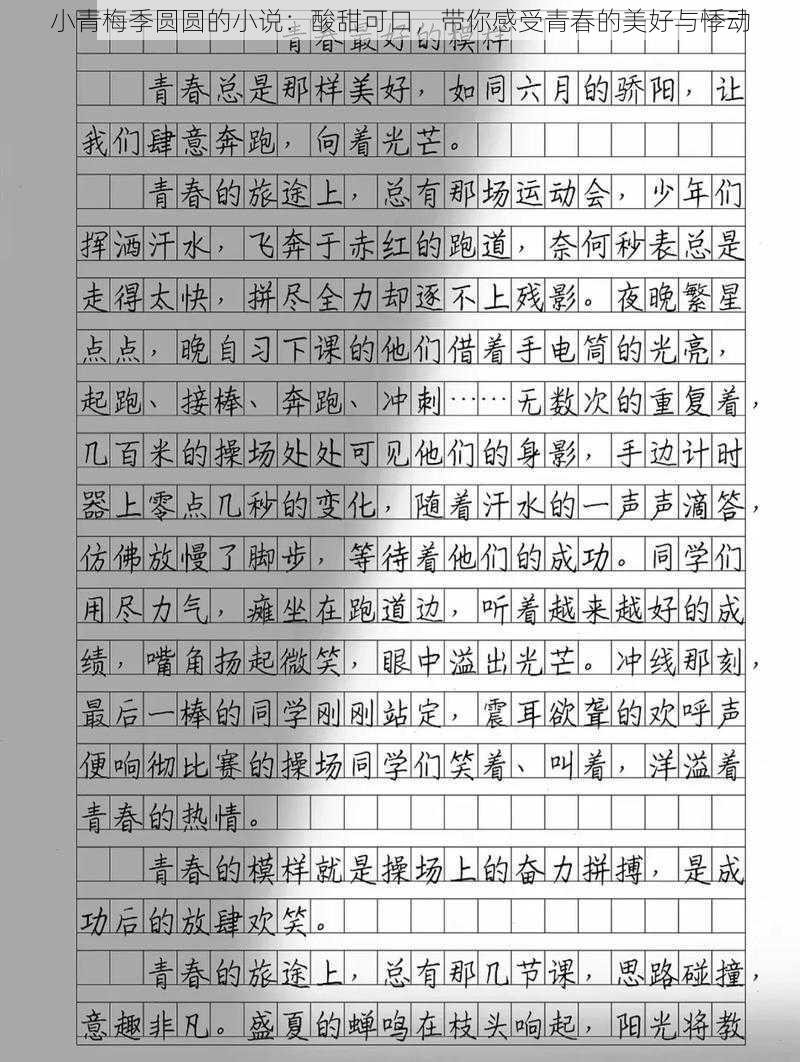 小青梅季圆圆的小说：酸甜可口，带你感受青春的美好与悸动
青春最好的模样
青春总是那样美好，如同六月的骄阳，让
我们肆意奔跑，向着光芒。
青春的旅途上，总有那场运动会，少年们
挥洒汗水，飞奔于赤红的跑道，奈何秒表总是
走得太快，拼尽全力却逐不上残影。夜晚繁星
点点，晚自习下课的他们借着手电筒的光亮，
起跑、接棒、奔跑、冲刺……无数次的重复着，
几百米的操场处处可见他们的身影，手边计时
器上零点几秒的变化，随着汗水的一声声滴答，
仿佛放慢了脚步，等待着他们的成功。同学们
用尽力气，瘫坐在跑道边，听着越来越好的成
绩，嘴角扬起微笑，眼中溢出光芒。冲线那刻，
最后一棒的同学刚刚站定，震耳欲聋的欢呼声
便响彻比赛的操场同学们笑着、叫着，洋溢着
青春的热情。
青春的模样就是操场上的奋力拼搏，是成
功后的放肆欢笑。
青春的旅途上，总有那几节课，思路碰撞，
意趣非凡。盛夏的蝉鸣在枝头响起，阳光将教